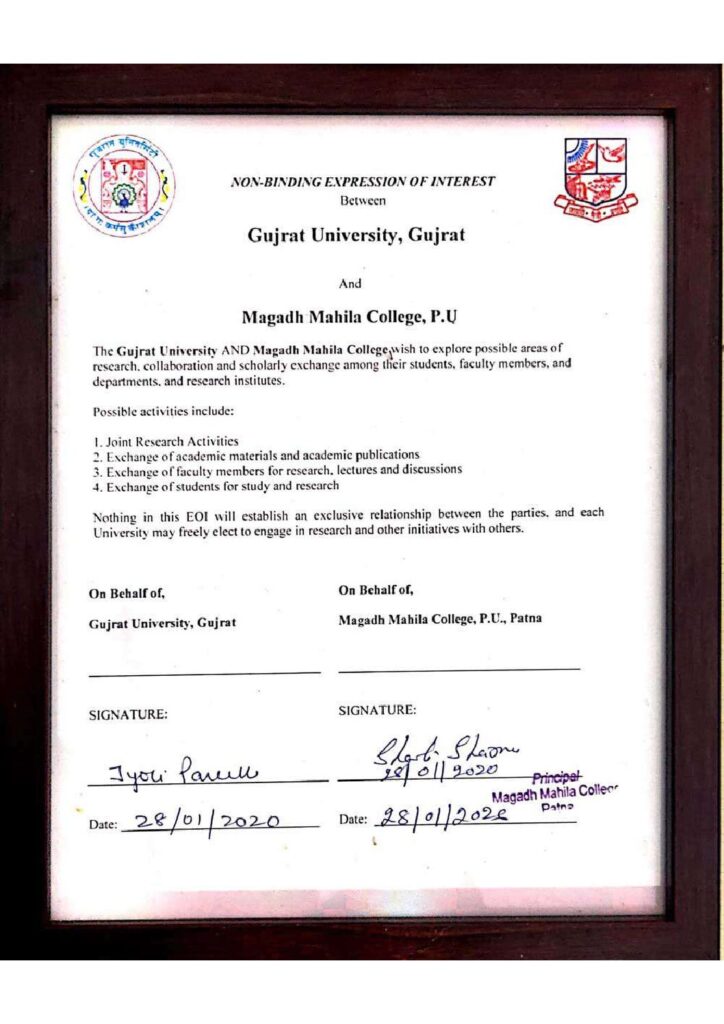 ગુજરાત યુનિવર્સિટી
NON-BINDING EXPRESSION OF INTEREST
Between
Gujrat University, Gujrat
And
Magadh Mahila College, P.U
The Gujrat University AND Magadh Mahila College, wish to explore possible areas of
research, collaboration and scholarly exchange among their students, faculty members, and
departments, and research institutes.
Possible activities include:
1. Joint Research Activities
2. Exchange of academic materials and academic publications
3. Exchange of faculty members for research, lectures and discussions
4. Exchange of students for study and research
Nothing in this EOI will establish an exclusive relationship between the parties, and each
University may freely elect to engage in research and other initiatives with others.
On Behalf of,
Gujrat University, Gujrat
SIGNATURE:
Jyoti
Date: 28/01/2020
On Behalf of,
Magadh Mahila College, P.U., Patna
SIGNATURE:
28/01/2020
Principal
Magadh Mahila College
Patna
Date: 28/01/2020